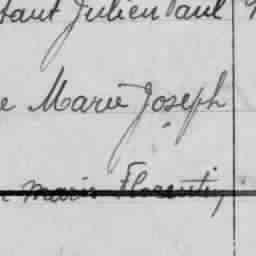 tant Julien Paul
e Marie Joseph
Marie Florentin